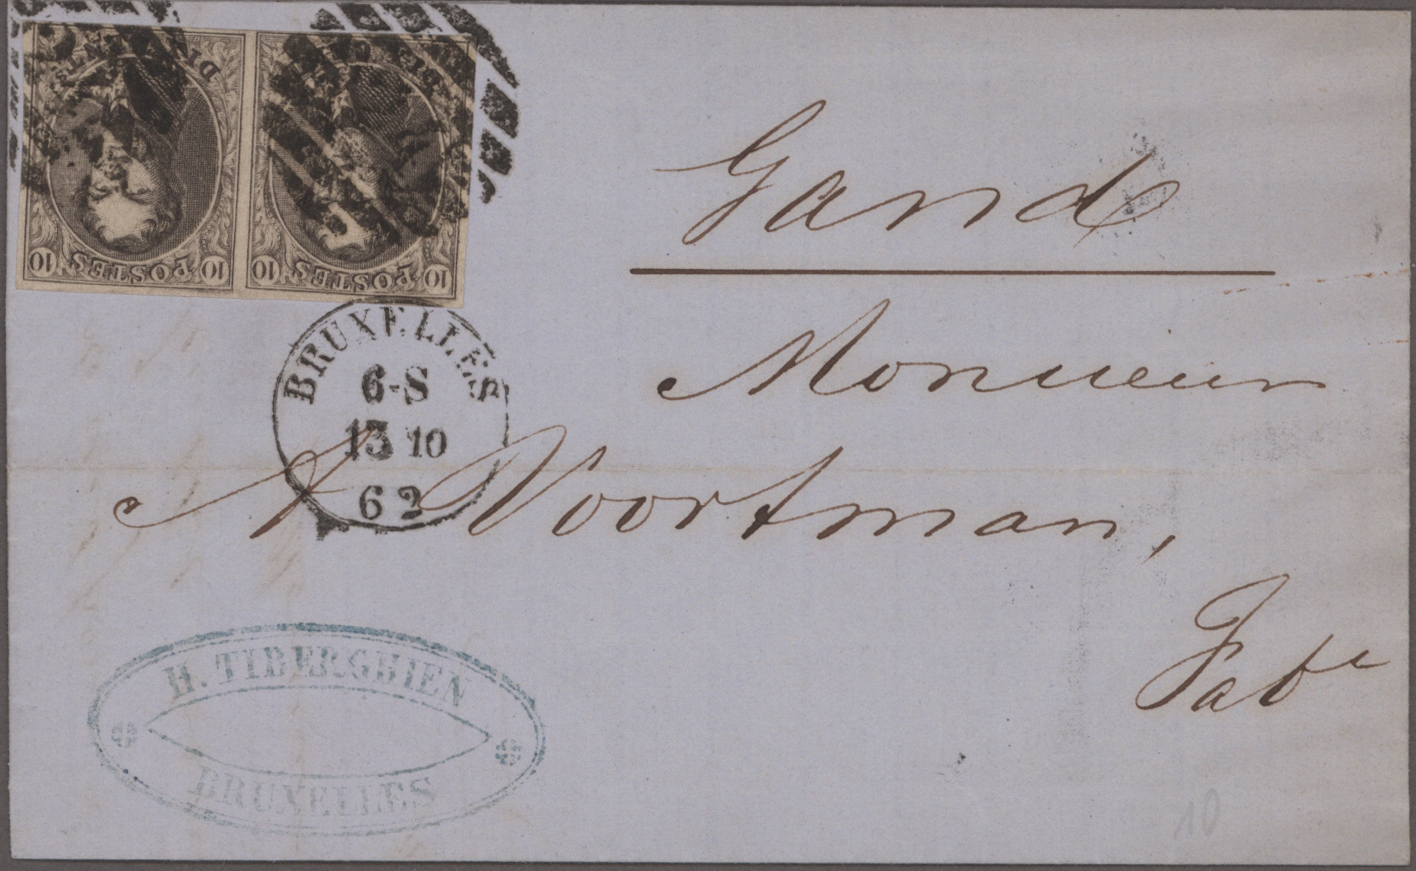 DIX
10 POSTES 10
10 POSTES 10
Gand
BRUXELLES
6-S
13 10
62
Monsieur
A Voortman,
Fabt
H. TIBERGHIEN
BRUXELLES
10